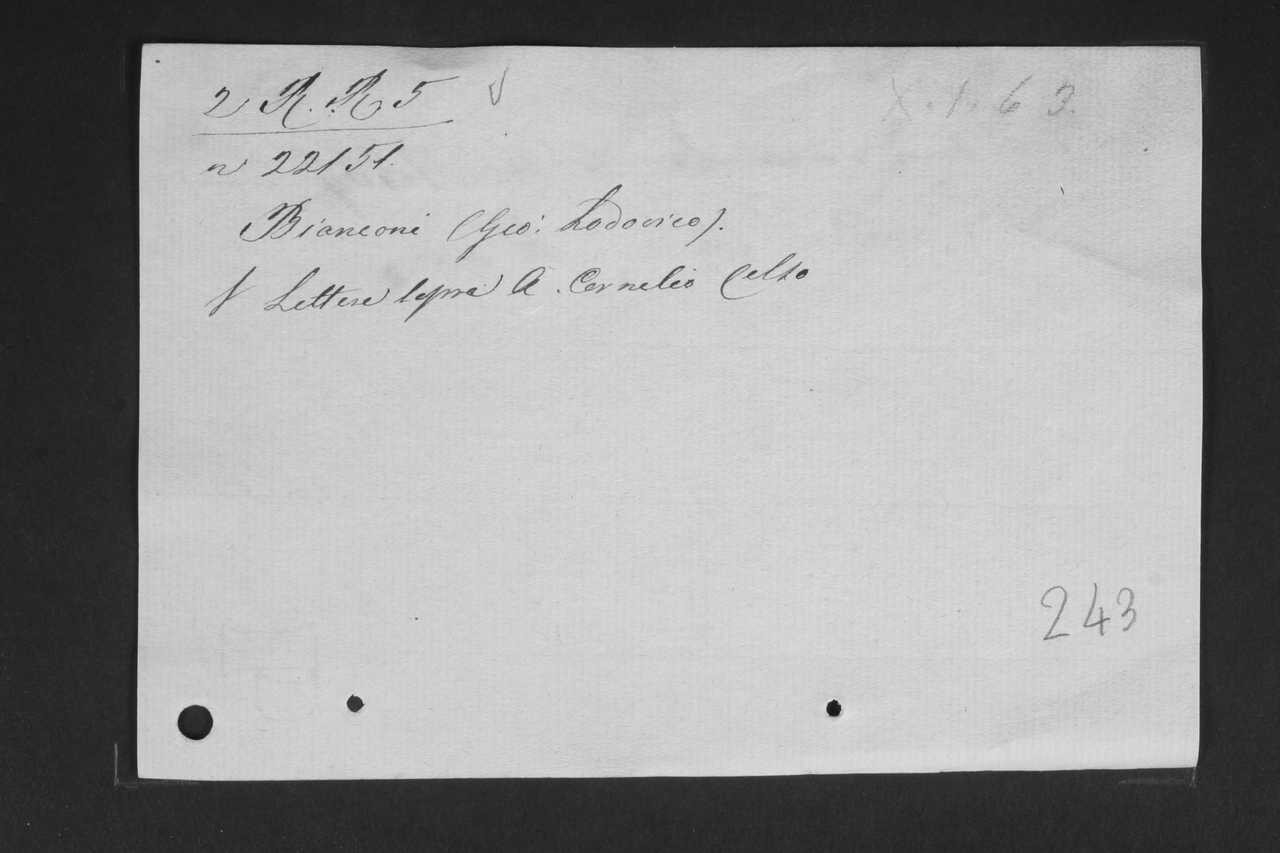 2 R. R 5 X. 1. 63.
n 22151.
Bianconi (Gio: Lodovico).
Lettere sopra A. Cornelio Celso
243